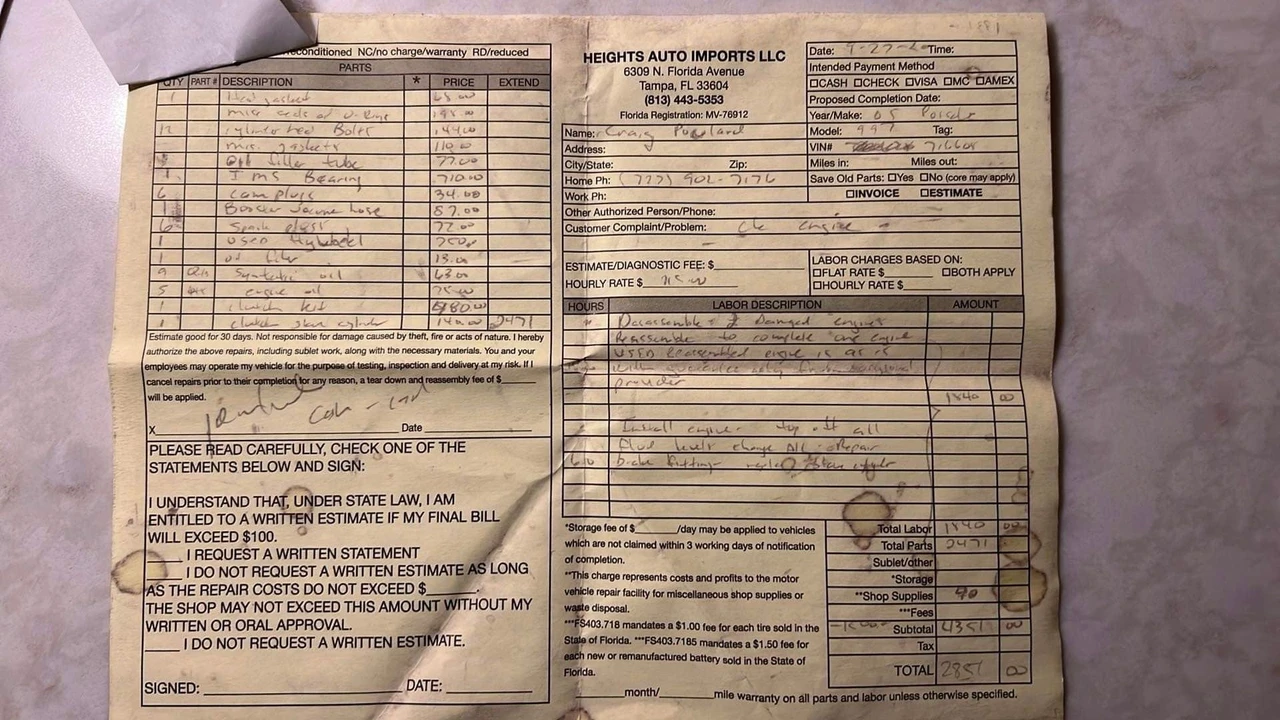 reconditioned NC/no charge/warranty RD/reduced
PARTS
QTY PART # DESCRIPTION * PRICE EXTEND
1 Head gasket 65.00
misc seals or O-Rings 195.00
12 cylinder head Bolts 144.00
mis. gaskets 110.00
Oil filler tube 77.00
1 IMS Bearing 710.00
6 cam plugs 34.00
1 87.00
6 Spark plugs 72.00
1 USED
1 oil filter 13.00
9 Synthetic oil 63.00
5 engine oil
1 clutch kit 480.00
1 clutch slave cylinder 140.00 2471
Estimate good for 30 days. Not responsible for damage caused by theft, fire or acts of nature. I hereby
authorize the above repairs, including sublet work, along with the necessary materials. You and your
employees may operate my vehicle for the purpose of testing, inspection and delivery at my risk. If I
cancel repairs prior to their completion for any reason, a tear down and reassembly fee of $
will be applied.
X Date
PLEASE READ CAREFULLY, CHECK ONE OF THE
STATEMENTS BELOW AND SIGN:
I UNDERSTAND THAT, UNDER STATE LAW, I AM
ENTITLED TO A WRITTEN ESTIMATE IF MY FINAL BILL
WILL EXCEED $100.
I REQUEST A WRITTEN STATEMENT
I DO NOT REQUEST A WRITTEN ESTIMATE AS LONG
AS THE REPAIR COSTS DO NOT EXCEED $
THE SHOP MAY NOT EXCEED THIS AMOUNT WITHOUT MY
WRITTEN OR ORAL APPROVAL.
I DO NOT REQUEST A WRITTEN ESTIMATE.
SIGNED: DATE:
HEIGHTS AUTO IMPORTS LLC
6309 N. Florida Avenue
Tampa, FL 33604
(813) 443-5353
Florida Registration: MV-76912
Date: 9-27-2 Time:
Intended Payment Method
CASH CHECK VISA MC AMEX
Proposed Completion Date:
Year/Make: 05
Model: 997 Tag:
VIN#
Miles in: Miles out:
Save Old Parts: Yes No (core may apply)
INVOICE ESTIMATE
Name: Craig
Address:
City/State: Zip:
Home Ph: (777) 902-7176
Work Ph:
Other Authorized Person/Phone:
Customer Complaint/Problem: ck engine
ESTIMATE/DIAGNOSTIC FEE: $
HOURLY RATE $ 115.00
LABOR CHARGES BASED ON:
FLAT RATE $ BOTH APPLY
HOURLY RATE $
HOURS LABOR DESCRIPTION AMOUNT
Disassemble 2 Damaged engines
Reassemble to complete one engine
USED Reassembled engine is as is
provider
1840 00
Install engine top off all
Fluid levels change Repair
*Storage fee of $ /day may be applied to vehicles
which are not claimed within 3 working days of notification
of completion.
**This charge represents costs and profits to the motor
vehicle repair facility for miscellaneous shop supplies or
waste disposal.
***FS403.718 mandates a $1.00 fee for each tire sold in the
State of Florida. ***FS403.7185 mandates a $1.50 fee for
each new or remanufactured battery sold in the State of
Florida.
Total Labor 1840 00
Total Parts 2471
Sublet/other
*Storage
**Shop Supplies 40
***Fees
Subtotal 4351 00
Tax
TOTAL 2851 00
month/ mile warranty on all parts and labor unless otherwise specified.